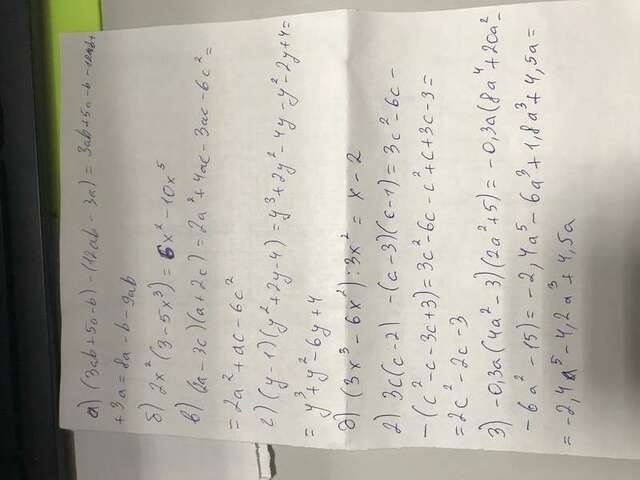 а) (3ab+5a-b)-(12ab-3a)=3ab+5a-b-12ab+
+3a=8a-b-9ab
б) 2x²(3-5x³)=6x²-10x⁵
в) (2a-3c)(a+2c)=2a²+4ac-3ac-6c²=
=2a²+ac-6c²
г) (y-1)(y²+2y-4)=y³+2y²-4y-y²-2y+4=
=y³+y²-6y+4
д) (3x³-6x²):3x²=x-2
2) 3c(c-2)-(c-3)(c-1)=3c²-6c-
-(c²-c-3c+3)=3c²-6c-c²+c+3c-3=
=2c²-2c-3
3) -0,3a(4a²-3)(2a²+5)=-0,3a(8a⁴+20a²-
-6a²-15)=-2,4a⁵-6a³+1,8a³+4,5a=
=-2,4a⁵-4,2a³+4,5a